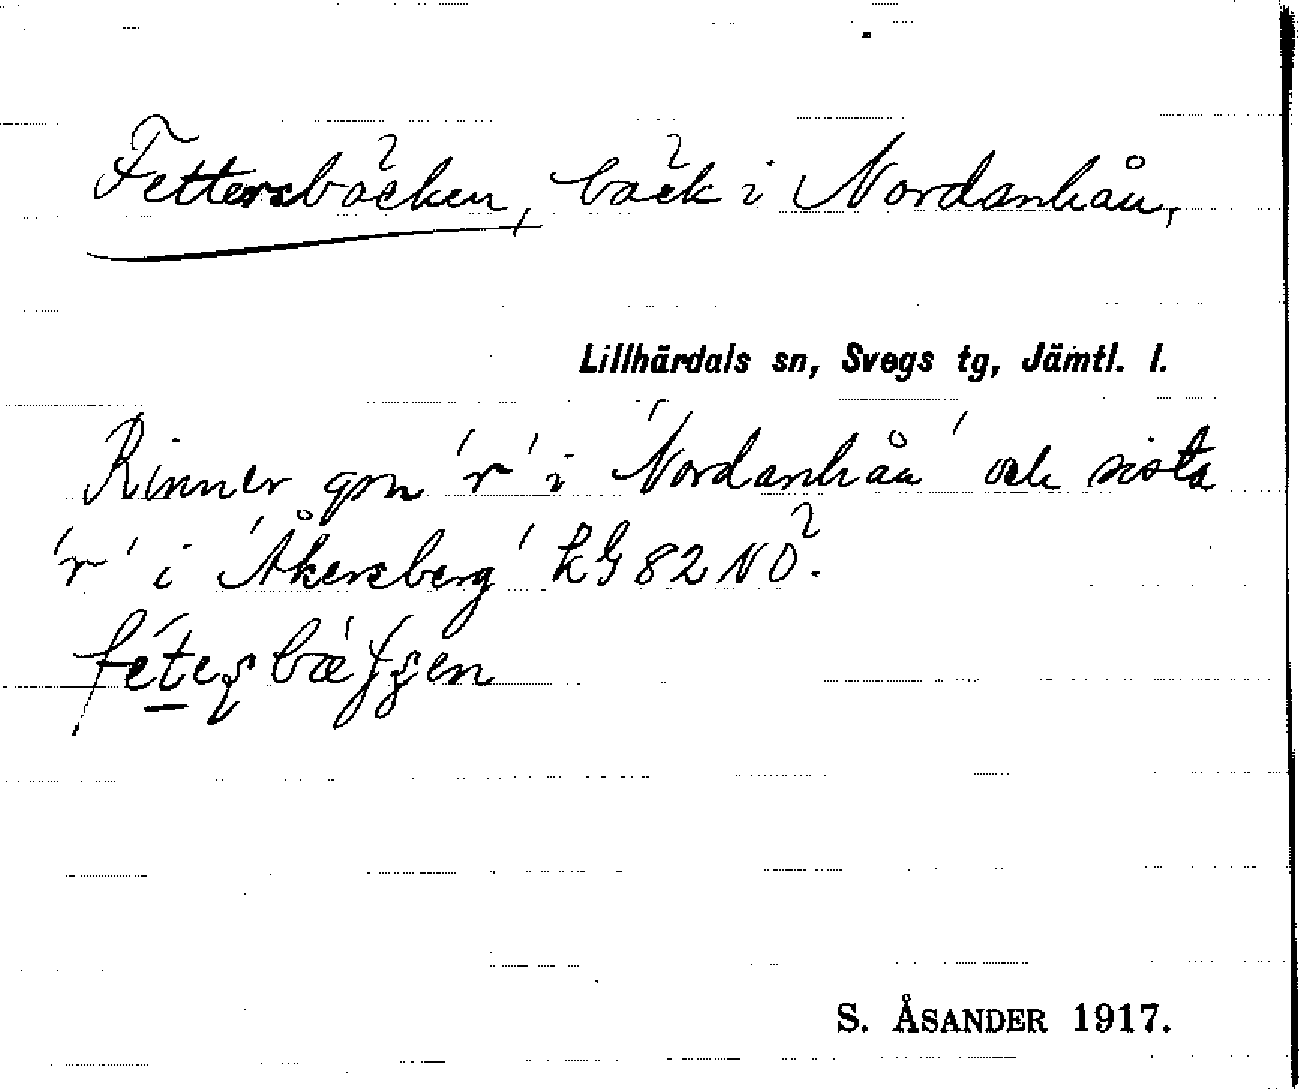 Fettersbäcken, bäck i Nordanhån,
Lillhärdals sn, Svegs tg, Jämtl. l.
Rinner gm 'r' i 'Nordanhån' och sista
'r' i 'Åkersberg' LG 82 NÖ.
S. ÅSANDER 1917.